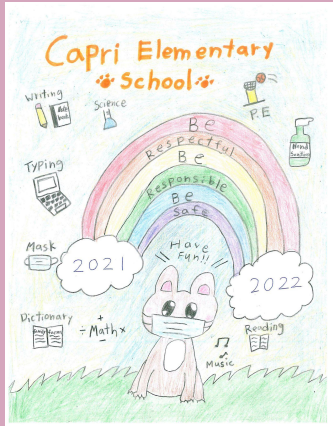 Capri Elementary
School
Writing
Science
P.E
Typing
Hand
Sanitizer
Be
Respectful
Be
Responsible
Be
Safe
Mask
2021
Have
Fun!!
2022
Dictionary
÷ Math ×
+
-
Reading
Music